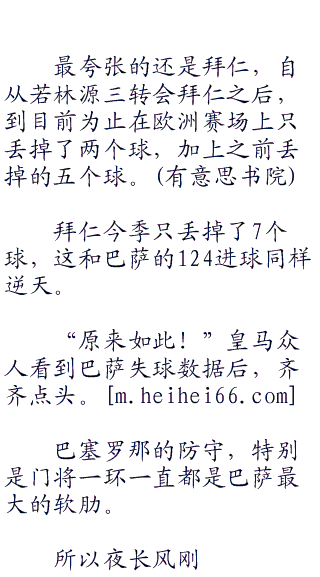 最夸张的还是拜仁，自
从若林源三转会拜仁之后，
到目前为止在欧洲赛场上只
丢掉了两个球，加上之前丢
掉的五个球。(有意思书院)
拜仁今季只丢掉了7个
球，这和巴萨的124进球同样
逆天。
“原来如此！”皇马众
人看到巴萨失球数据后，齐
齐点头。[m.heihei66.com]
巴塞罗那的防守，特别
是门将一环一直都是巴萨最
大的软肋。
所以夜长风刚